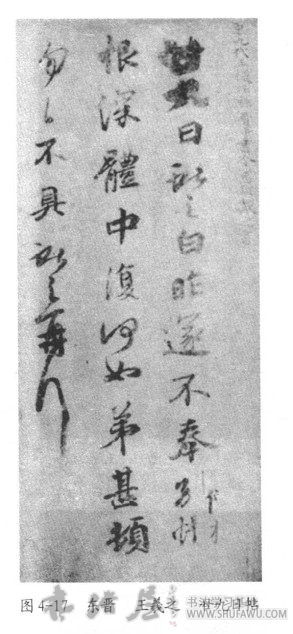 廿九日獻之白昨遂不奉別悵
恨深體中復何如弟甚頓
勿々不具獻之再拜
图4-17 东晋 王羲之 廿九日帖
书法屋
www.SHUFAWU.com